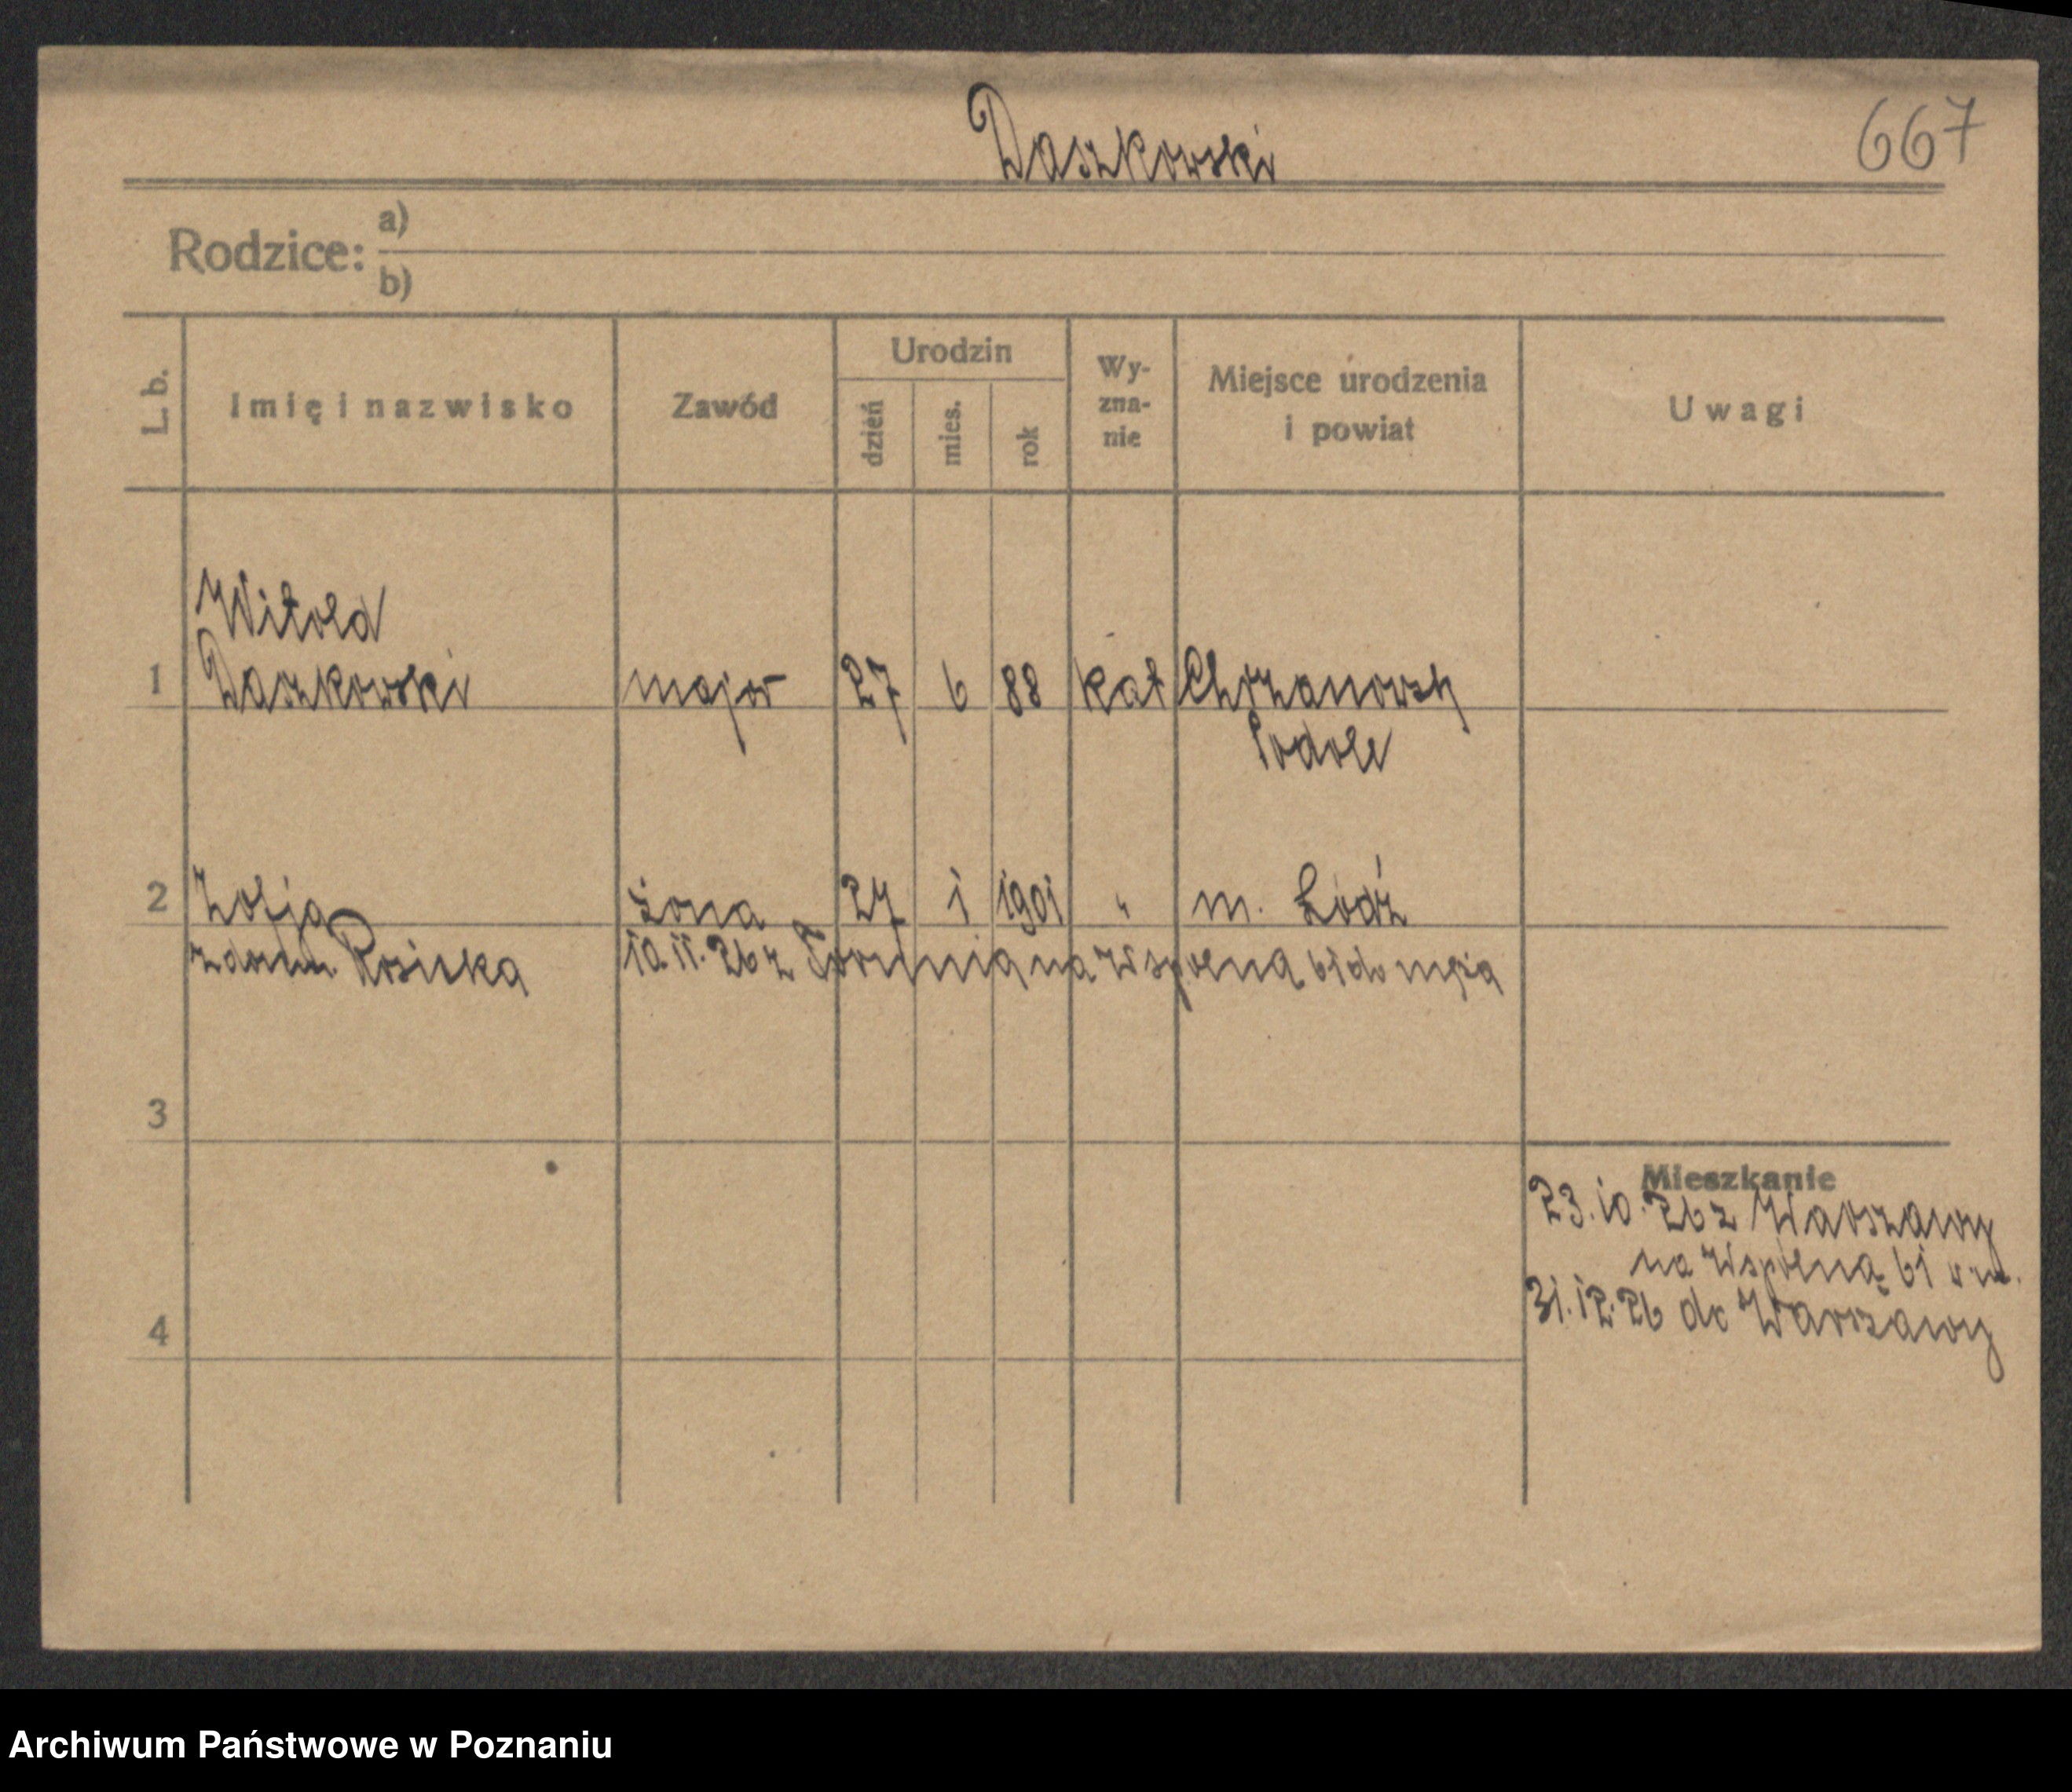 Daszkowski
667
Rodzice: a)
b)
L. b.
Imię i nazwisko
Zawód
Urodzin
dzień
mies.
rok
Wy-
zna-
nie
Miejsce urodzenia
i powiat
Uwagi
Witold
1 Daszkowski major 27 6 88 kat
Podole
2 Zofja żona 27 1 1901 " m. Łódź
10.11.26 z Torunia na Wspólną 61 do męża
3
Mieszkanie
23.10.26 z Warszawy
na Wspólną 61
31.12.26 do Warszawy
4
Archiwum Państwowe w Poznaniu